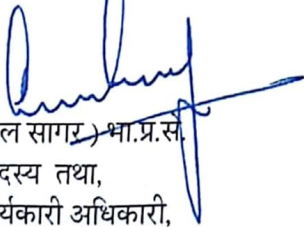 ल सागर ) भा.प्र.से.
दस्य तथा,
र्यकारी अधिकारी,